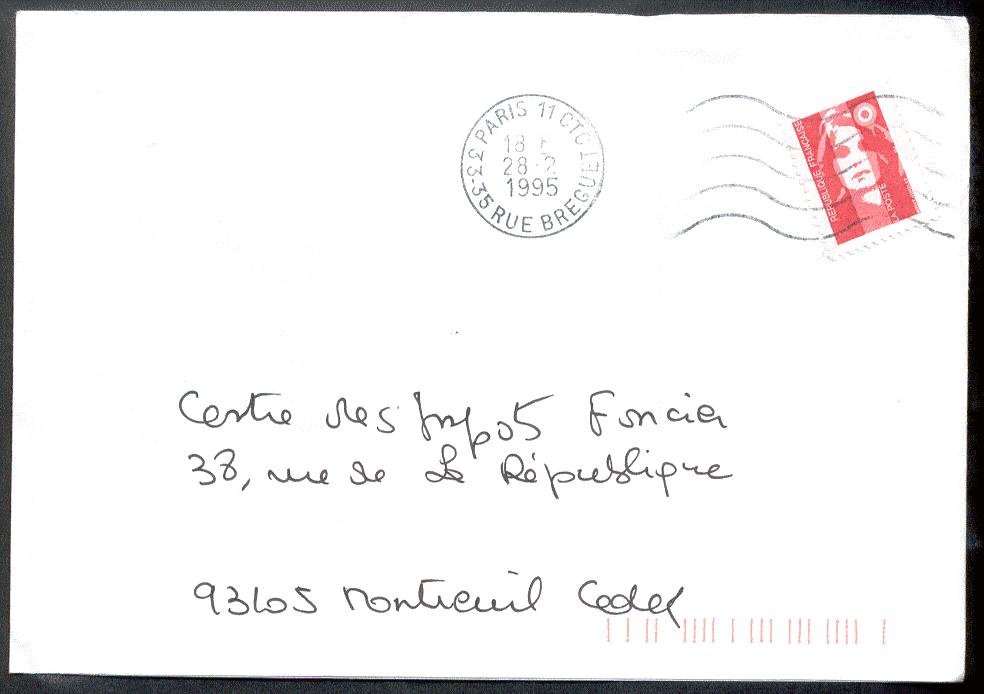 PARIS 11 CTC
18
28-2
1995
33-35 RUE BREGUET
REPUBLIQUE FRANÇAISE
LA POSTE
Centre des Impots Foncier
38, rue de la République
93105 Montreuil Cedex